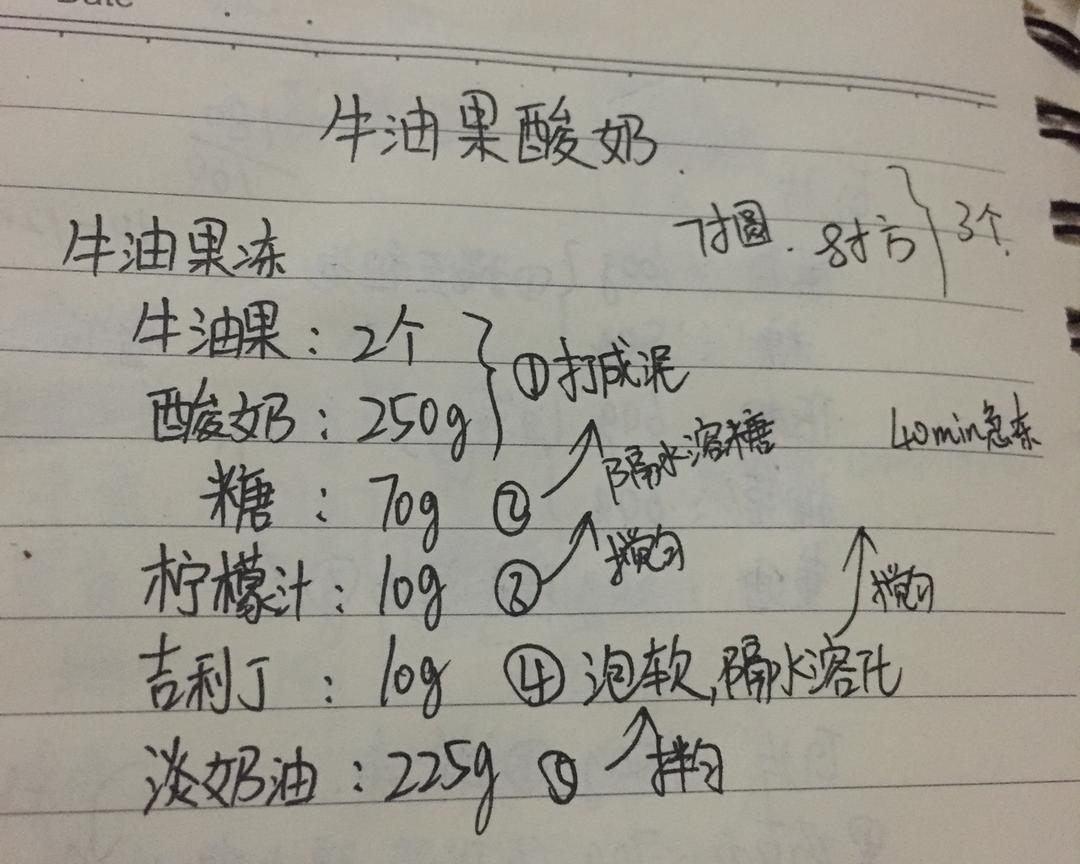 Date
牛油果酸奶
7寸圆. 8寸方 } 3个
牛油果冻
牛油果: 2个
酸奶: 250g
①打成泥
糖: 70g ②
隔水溶糖
40min急冻
柠檬汁: 10g ③
搅匀
搅匀
吉利丁: 10g ④ 泡软,隔水溶化
淡奶油: 225g ⑤
拌匀